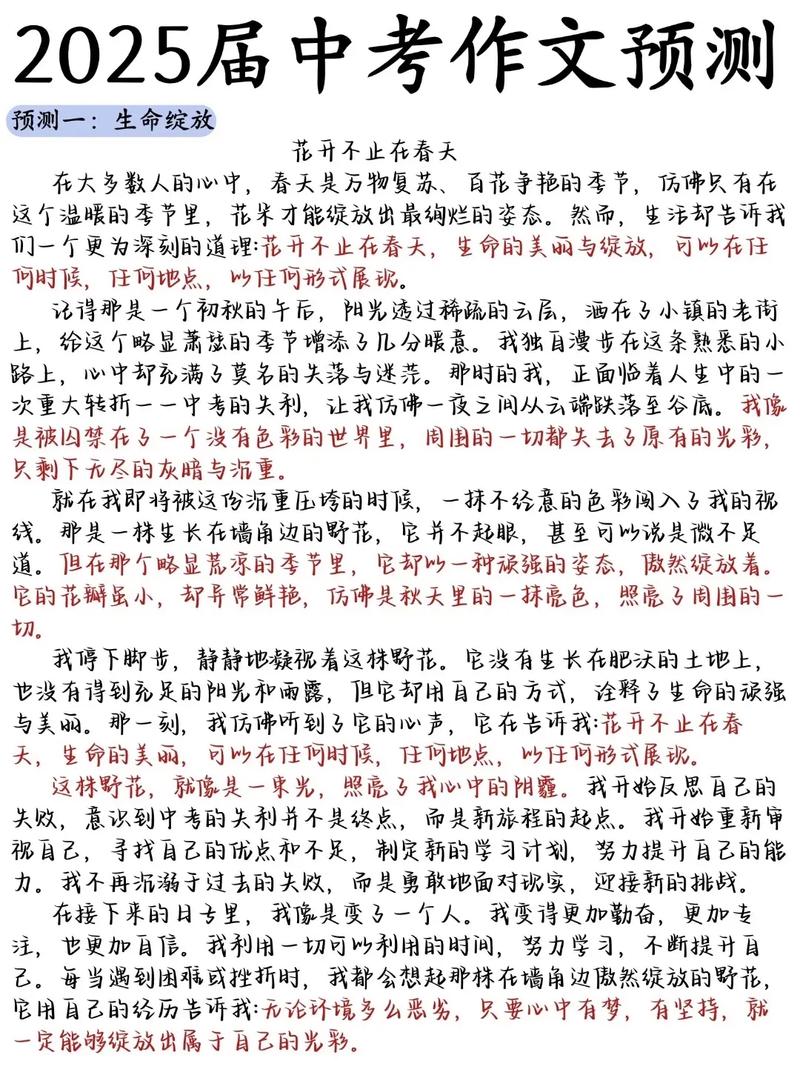 2025届中考作文预测
预测一：生命绽放
花开不止在春天
在大多数人的心中，春天是万物复苏、百花争艳的季节，仿佛只有在
这个温暖的季节里，花朵才能绽放出最绚烂的姿态。然而，生活却告诉我
们一个更为深刻的道理:花开不止在春天，生命的美丽与绽放，可以在任
何时候，任何地点，以任何形式展现。
记得那是一个初秋的午后，阳光透过稀疏的云层，洒在了小镇的老街
上，给这个略显萧瑟的季节增添了几分暖意。我独自漫步在这条熟悉的小
路上，心中却充满了莫名的失落与迷茫。那时的我，正面临着人生中的一
次重大转折一一中考的失利，让我仿佛一夜之间从云端跌落至谷底。我像
是被囚禁在了一个没有色彩的世界里，周围的一切都失去了原有的光彩，
只剩下无尽的灰暗与沉重。
就在我即将被这份沉重压垮的时候，一抹不经意的色彩闯入了我的视
线。那是一株生长在墙角边的野花，它并不起眼，甚至可以说是微不足
道。但在那个略显荒凉的季节里，它却以一种顽强的姿态，傲然绽放着。
它的花瓣虽小，却异常鲜艳，仿佛是秋天里的一抹亮色，照亮了周围的一
切。
我停下脚步，静静地凝视着这株野花。它没有生长在肥沃的土地上，
也没有得到充足的阳光和雨露，但它却用自己的方式，诠释了生命的顽强
与美丽。那一刻，我仿佛听到了它的心声，它在告诉我:花开不止在春
天，生命的美丽，可以在任何时候，任何地点，以任何形式展现。
这株野花，就像是一束光，照亮了我心中的阴霾。我开始反思自己的
失败，意识到中考的失利并不是终点，而是新旅程的起点。我开始重新审
视自己，寻找自己的优点和不足，制定新的学习计划，努力提升自己的能
力。我不再沉溺于过去的失败，而是勇敢地面对现实，迎接新的挑战。
在接下来的日子里，我像是变了一个人。我变得更加勤奋，更加专
注，也更加自信。我利用一切可以利用的时间，努力学习，不断提升自
己。每当遇到困难或挫折时，我都会想起那株在墙角边傲然绽放的野花，
它用自己的经历告诉我:无论环境多么恶劣，只要心中有梦，有坚持，就
一定能够绽放出属于自己的光彩。